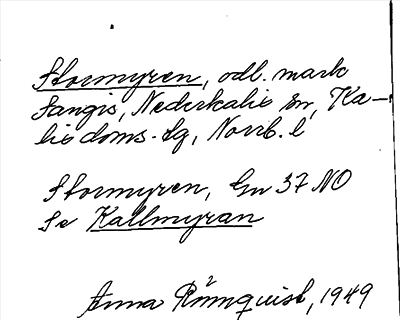 Stormyren, odl. mark
Sangis, Nederkalix sn, Ka-
lix doms. lg, Norrb. l
Stormyren, Gn 37 NO
Se Kallmyran
Anna Rönnquist, 1949